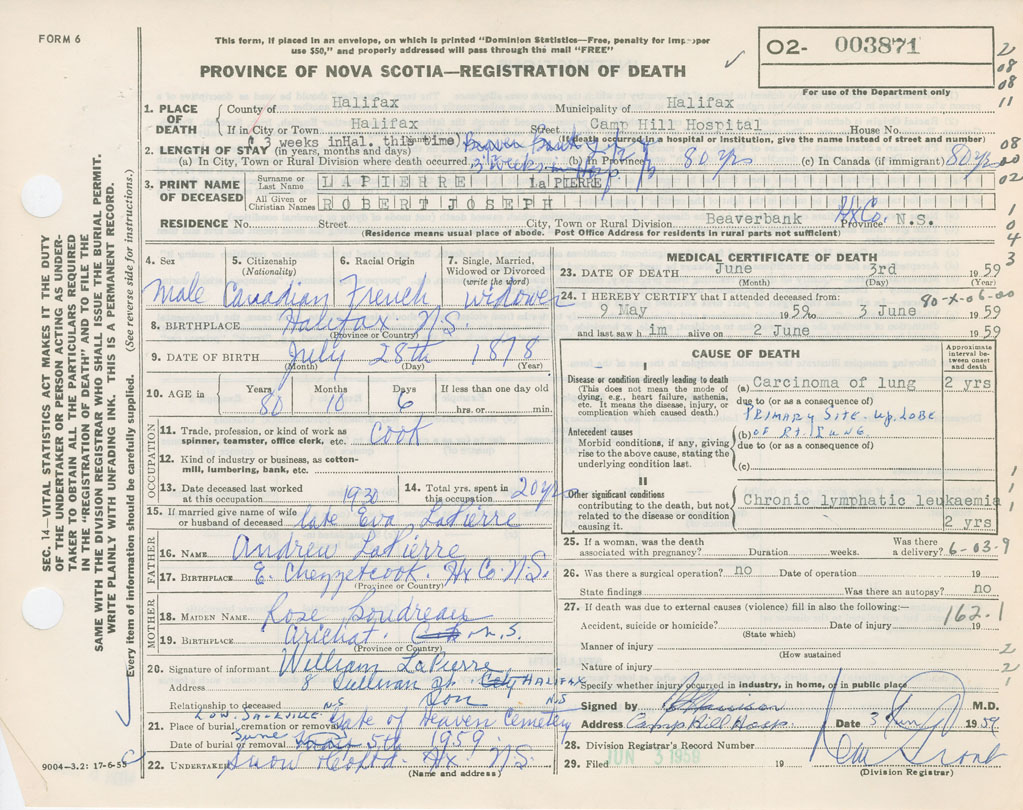 FORM 6
This form, if placed in an envelope, on which is printed "Dominion Statistics—Free, penalty for improper
use $50," and properly addressed will pass through the mail "FREE"
PROVINCE OF NOVA SCOTIA—REGISTRATION OF DEATH
O2- 003871
For use of the Department only
2
08
08
11
08
00
02
1
0
4
3
SEC. 14—VITAL STATISTICS ACT MAKES IT THE DUTY
OF THE UNDERTAKER OR PERSON ACTING AS UNDER-
TAKER TO OBTAIN ALL THE PARTICULARS REQUIRED
IN THE "REGISTRATION OF DEATH" AND FILE THE
SAME WITH THE DIVISION REGISTRAR WHO SHALL ISSUE THE BURIAL PERMIT.
WRITE PLAINLY WITH UNFADING INK. THIS IS A PERMANENT RECORD.
Every item of information should be carefully supplied. (See reverse side for instructions.)
1. PLACE OF DEATH County of Halifax Municipality of Halifax
If in City or Town Halifax Street Camp Hill Hospital House No.
(If death occurred in a hospital or institution, give the name instead of street and number)
(3 weeks inHal. this time)
2. LENGTH OF STAY (in years, months and days)
(a) In City, Town or Rural Division where death occurred 3 weeks in Hosp. (b) In Province 80 yrs (c) In Canada (if immigrant) 80 yrs
3. PRINT NAME OF DECEASED Surname or Last Name LAPIERRE LaPIERRE
All Given or Christian Names ROBERT JOSEPH
RESIDENCE No. Street City, Town or Rural Division Beaverbank Hx Co. Province N.S.
(Residence means usual place of abode. Post Office Address for residents in rural parts not sufficient)
4. Sex Male
5. Citizenship (Nationality) Canadian
6. Racial Origin French
7. Single, Married, Widowed or Divorced (write the word) Widower
8. BIRTHPLACE Halifax N.S.
(Province or Country)
9. DATE OF BIRTH July 28th 1878
(Month) (Day) (Year)
10. AGE in Years 80 Months 10 Days 6 If less than one day old hrs. or min.
OCCUPATION
11. Trade, profession, or kind of work as spinner, teamster, office clerk, etc. Cook
12. Kind of industry or business, as cotton-mill, lumbering, bank, etc.
13. Date deceased last worked at this occupation 1930
14. Total yrs. spent in this occupation 20 yrs
15. If married give name of wife or husband of deceased late Eva LaPierre
FATHER
16. NAME Andrew LaPierre
17. BIRTHPLACE E. Chezzetcook. Hx Co. N.S.
(Province or Country)
MOTHER
18. MAIDEN NAME Rose Boudreau
19. BIRTHPLACE Arichat. N.S.
(Province or Country)
20. Signature of informant William LaPierre
Address 8 Sullivan St. City HALIFAX
Relationship to deceased Son N.S
21. Place of burial, cremation or removal LOW. SACKVILLE N.S Gate of Heaven Cemetery
Date of burial or removal June 5th 1959
22. UNDERTAKER Snow Hx. N.S.
(Name and address)
9004-3.2: 17-6-55
MEDICAL CERTIFICATE OF DEATH
23. DATE OF DEATH June 3rd 1959
(Month) (Day) (Year)
24. I HEREBY CERTIFY that I attended deceased from: 80-X-06-00
9 May 1959 to 3 June 1959
and last saw him alive on 2 June 1959
CAUSE OF DEATH
Approximate interval between onset and death
I
Disease or condition directly leading to death
(This does not mean the mode of dying, e.g., heart failure, asthenia, etc. It means the disease, injury, or complication which caused death.)
(a) Carcinoma of lung 2 yrs
due to (or as a consequence of)
PRIMARY SITE - Up. LOBE
(b) OF RT. LUNG
due to (or as a consequence of)
(c)
Antecedent causes
Morbid conditions, if any, giving rise to the above cause, stating the underlying condition last.
II
Other significant conditions
contributing to the death, but not related to the disease or condition causing it.
Chronic lymphatic leukaemia
2 yrs
25. If a woman, was the death associated with pregnancy? Duration weeks. Was there a delivery? 6-03-9
26. Was there a surgical operation? no Date of operation 19
State findings Was there an autopsy? no
27. If death was due to external causes (violence) fill in also the following:—
162.1
Accident, suicide or homicide? Date of injury 19
(State which)
Manner of injury
(How sustained
Nature of injury
Specify whether injury occurred in industry, in home, or in public place
Signed by M.D.
Address Camp Hill Hosp. Date 3 Jun 1959
28. Division Registrar's Record Number
29. Filed JUN 3 1959 19
(Division Registrar)